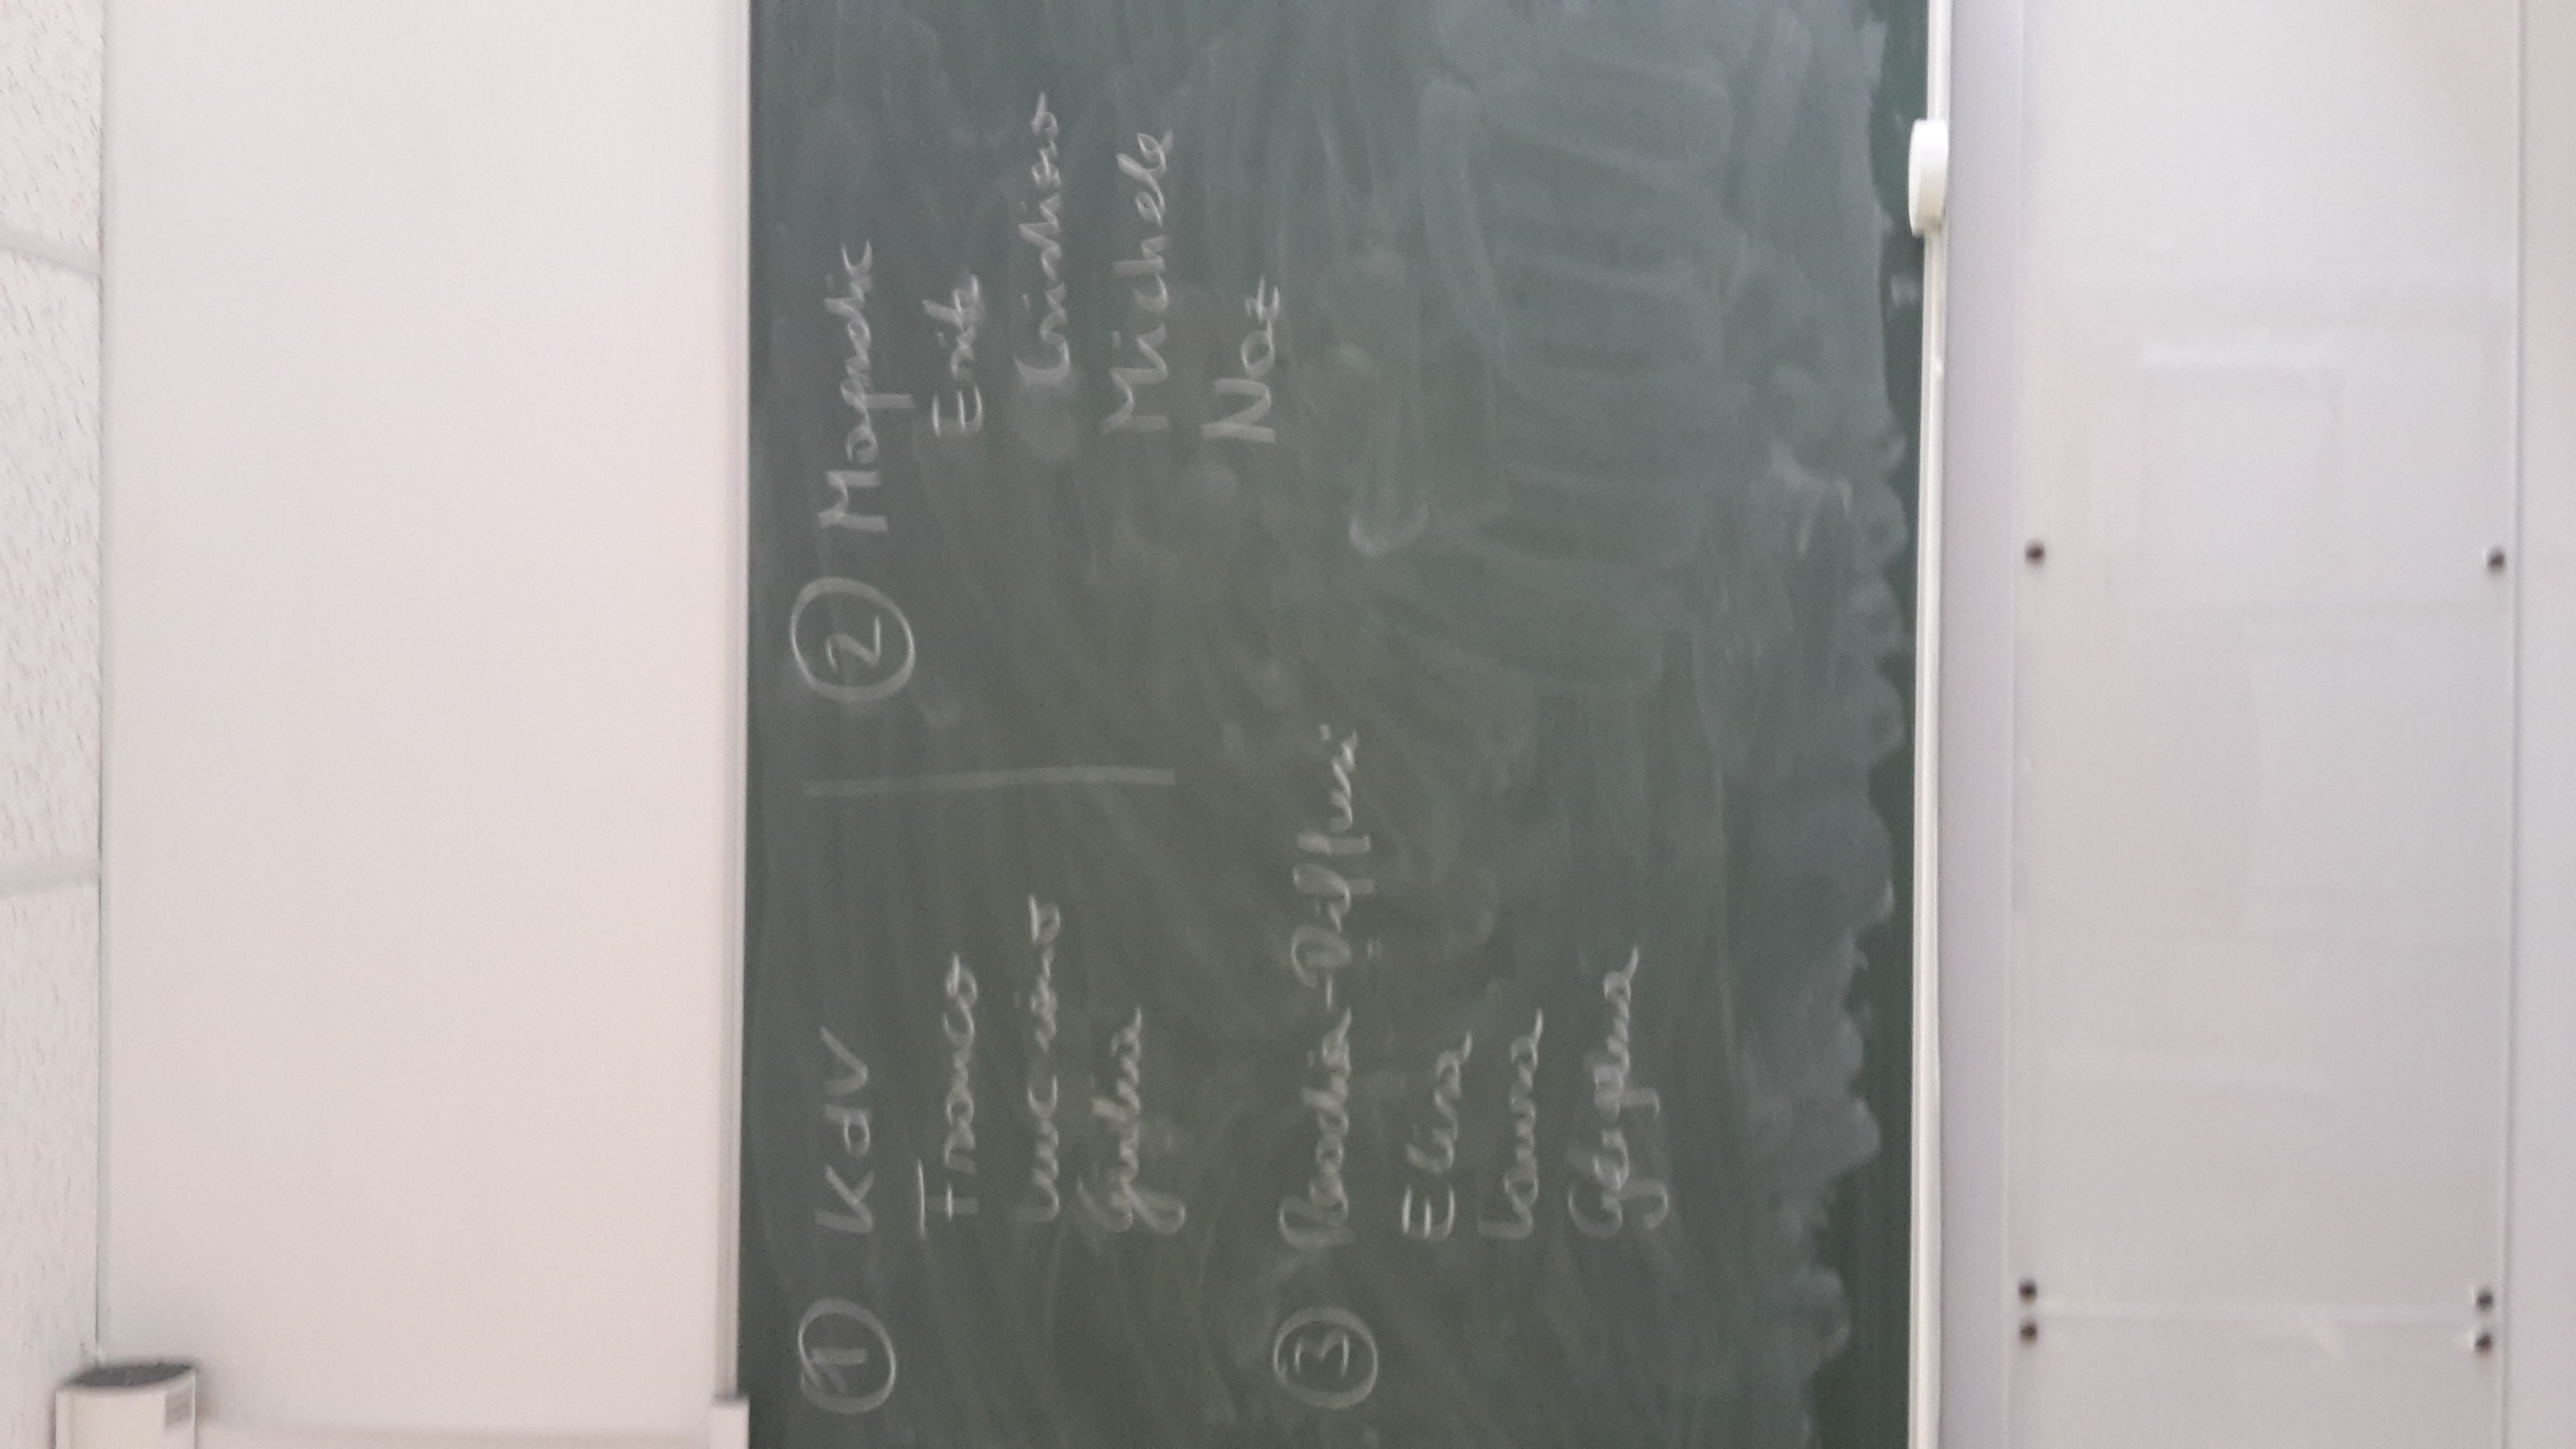 ① KdV
Franco
Luciano
Giulia
② Magnetic
Erik
Cristiano
Michele
Noè
③ Reactio-Diffusi
Elisa
Laura